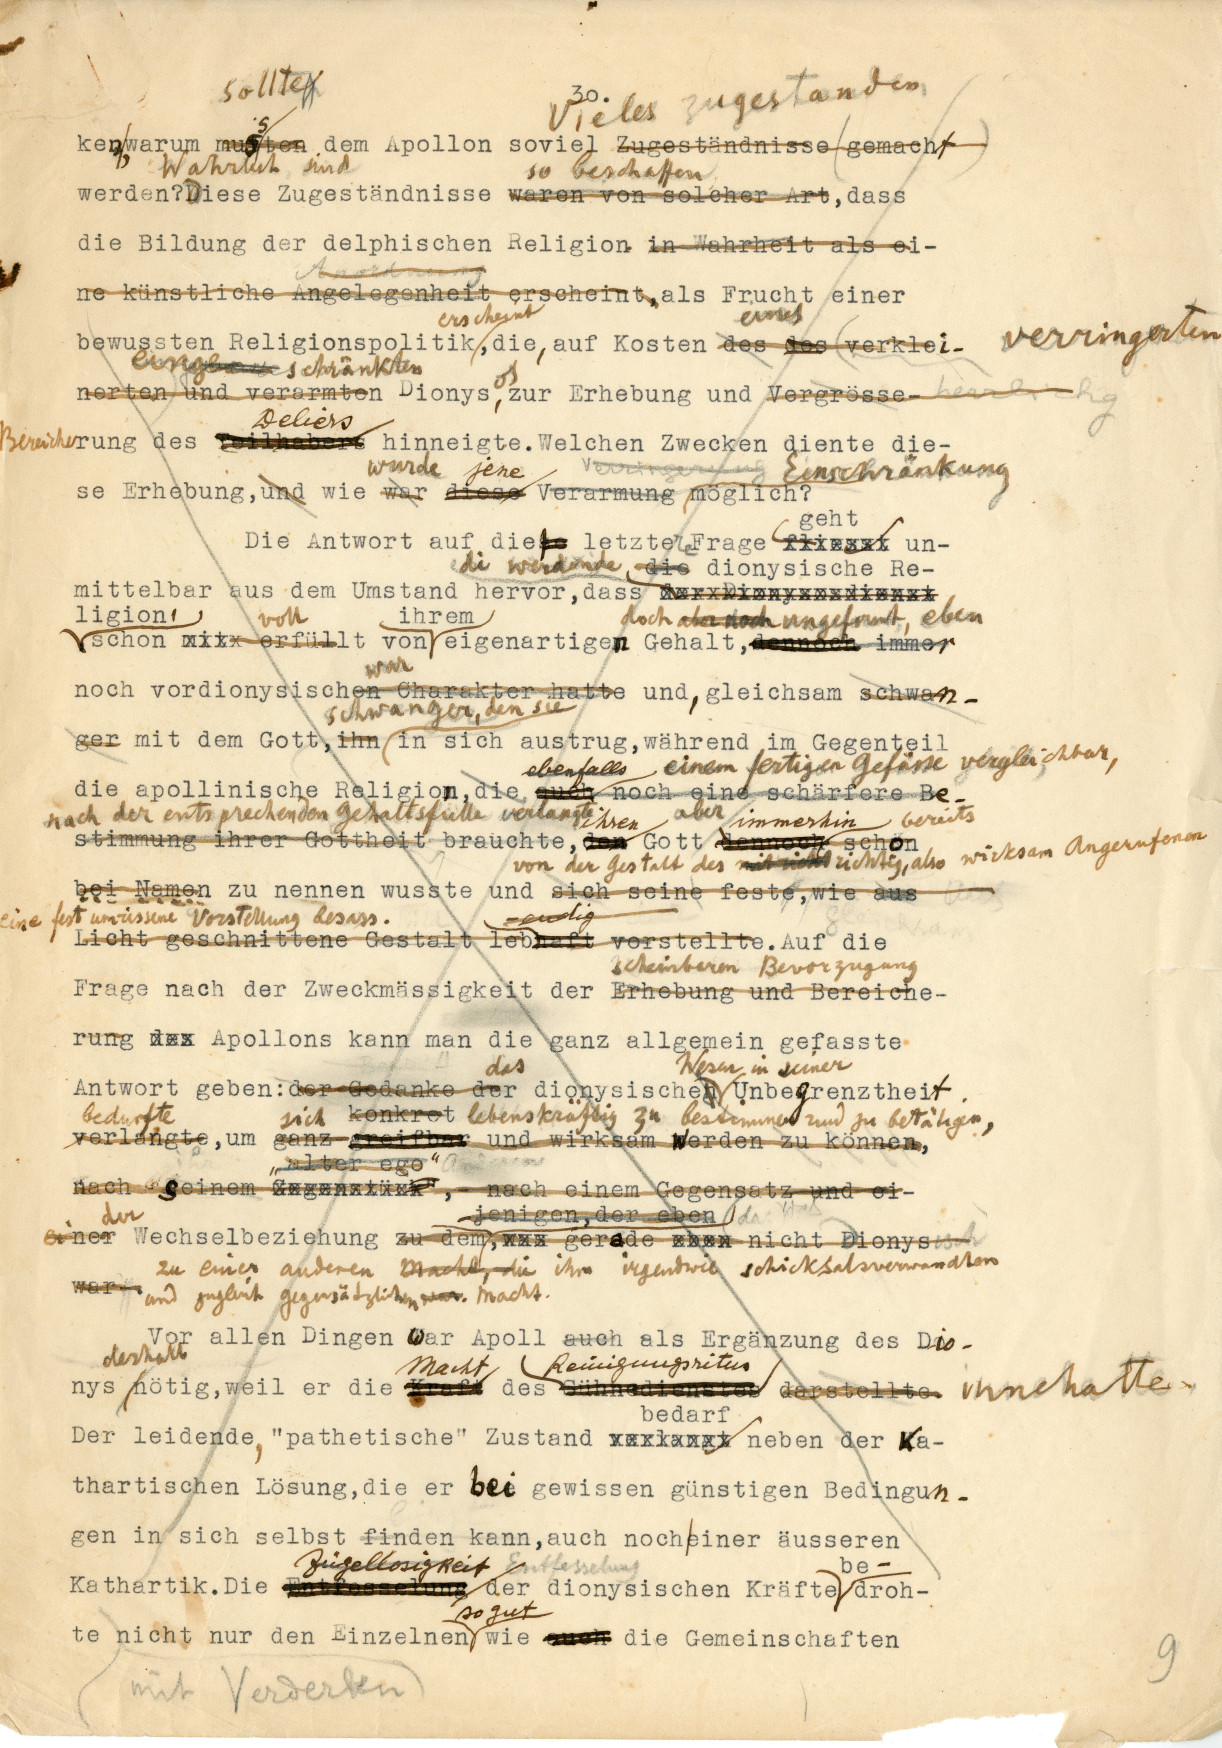 sollte
30.
Vieles zugestanden
ken, warum mussten dem Apollon soviel Zugeständnisse (gemacht)
Wahrlich sind
so beschaffen
werden? Diese Zugeständnisse waren von solcher Art, dass
die Bildung der delphischen Religion in Wahrheit als ei-
Anordnung
ne künstliche Angelegenheit erscheint, als Frucht einer
erscheint
eines
bewussten Religionspolitik, die, auf Kosten des des (verklei-
verringerten
schränkten
nerten und verarmten Dionysos, zur Erhebung und Vergrösse-
Deliers
Bereicherung des Teilhabers hinneigte. Welchen Zwecken diente die-
wurde jene Verringerung Einschränkung
se Erhebung, und wie war diese Verarmung möglich?
geht
Die Antwort auf diese letztere Frage un-
werdende die dionysische Re-
mittelbar aus dem Umstand hervor, dass
ligion,
voll
ihrem
doch aber noch ungeformt, eben
schon erfüllt von eigenartigen Gehalt, dennoch immer
war
noch vordionysischen Charakter hatte und, gleichsam schwan-
schwanger, den sie
ger mit dem Gott, ihn in sich austrug, während im Gegenteil
ebenfalls einem fertigen Gefässe vergleichbar,
die apollinische Religion, die auch noch eine schärfere Be-
nach der entsprechenden Gehaltsfülle verlangte
ihren aber immerhin bereits
stimmung ihrer Gottheit brauchte, den Gott dennoch schon
von der Gestalt des richtig, also wirksam Angerufenen
bei Namen zu nennen wusste und sich seine feste, wie aus
eine fest umrissene Vorstellung besass.
-endig
Licht geschnittene Gestalt lebhaft vorstellte. Auf die
scheinbaren Bevorzugung
Frage nach der Zweckmässigkeit der Erhebung und Bereiche-
rung des Apollons kann man die ganz allgemein gefasste
das
Wesen in seiner
Antwort geben: der Gedanke der dionysischen Unbegrenztheit
bedurfte sich konkret lebenskräftig zu bestimmen und zu betätigen,
verlangte, um ganz greifbar und wirksam werden zu können,
"alter ego"
nach seinem , - nach einem Gegensatz und ei-
jenigen, der eben
der
einer Wechselbeziehung zu dem, gerade nicht Dionysisch
zu einer anderen Macht, die ihm irgendwie schicksalsverwandten
war.
und zugleich gegensätzlichen war. Macht.
Vor allen Dingen war Apoll auch als Ergänzung des Dio-
deshalb
Macht
Reinigungsritus
nys nötig, weil er die Kraft des Sühnedienstes darstellte. innehatte.
bedarf
Der leidende, "pathetische" Zustand neben der Ka-
thartischen Lösung, die er bei gewissen günstigen Bedingun-
gen in sich selbst finden kann, auch noch einer äusseren
Zügellosigkeit Entfesselung
be-
Kathartik. Die Entfesselung der dionysischen Kräfte droh-
so gut
te nicht nur den Einzelnen wie auch die Gemeinschaften
(mit Verderben)
9